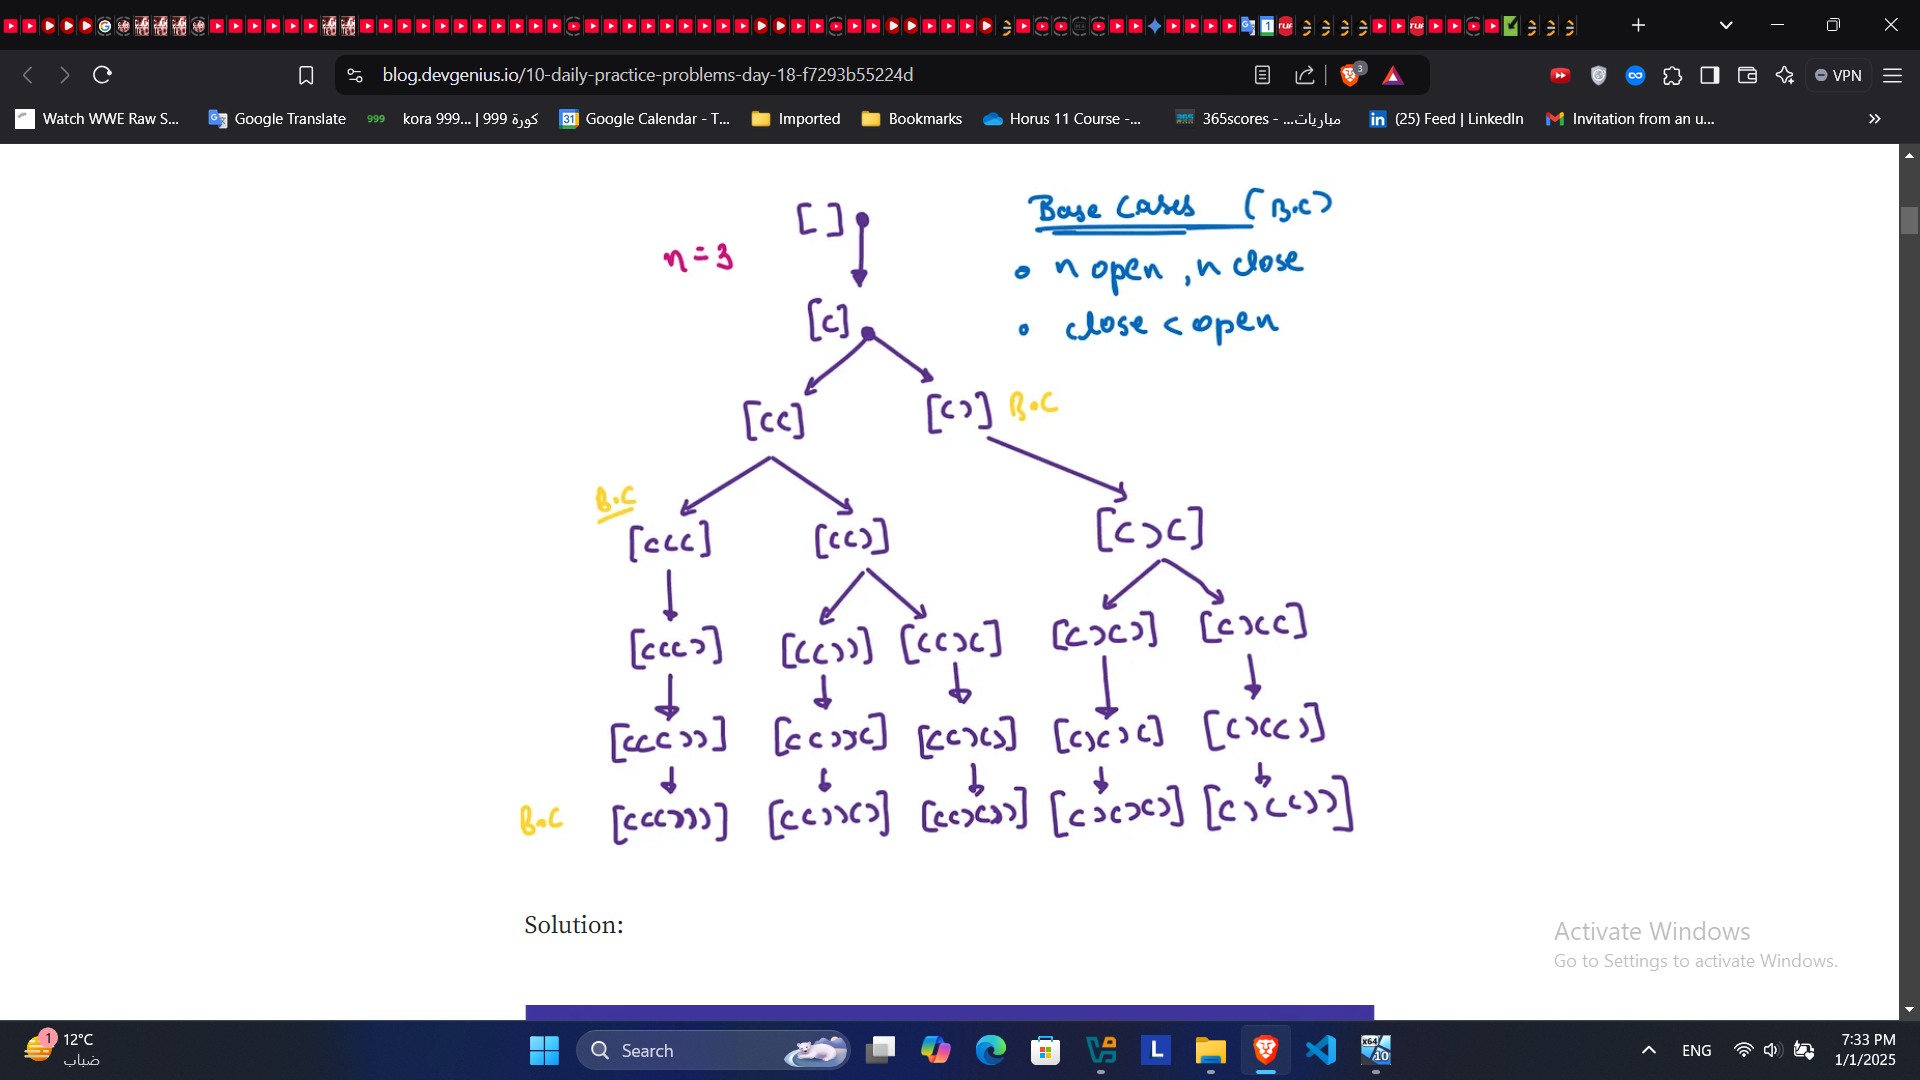 blog.devgenius.io/10-daily-practice-problems-day-18-f7293b55224d
3
VPN
Watch WWE Raw S...
Google Translate
999 kora 999... | كورة 999
31 Google Calendar - T...
Imported
Bookmarks
Horus 11 Course -...
365scores - ...مباريات
(25) Feed | LinkedIn
Invitation from an u...
[ ]
Base Cases (B.C)
n = 3
• n open , n close
[(]
• close < open
[((]
[()] B.C
B.C
[(((]
[(()]
[()(]
[((()]
[(())]
[(()(]
[()()]
[()((]
[((())]
[(())(]
[(()()]
[()()(]
[()(()]
B.C
[((()))]
[(())()]
[(()())]
[()()()]
[()(())]
Solution:
Activate Windows
Go to Settings to activate Windows.
1
12°C
ضباب
Search
L
x64
10
ENG
7:33 PM
1/1/2025